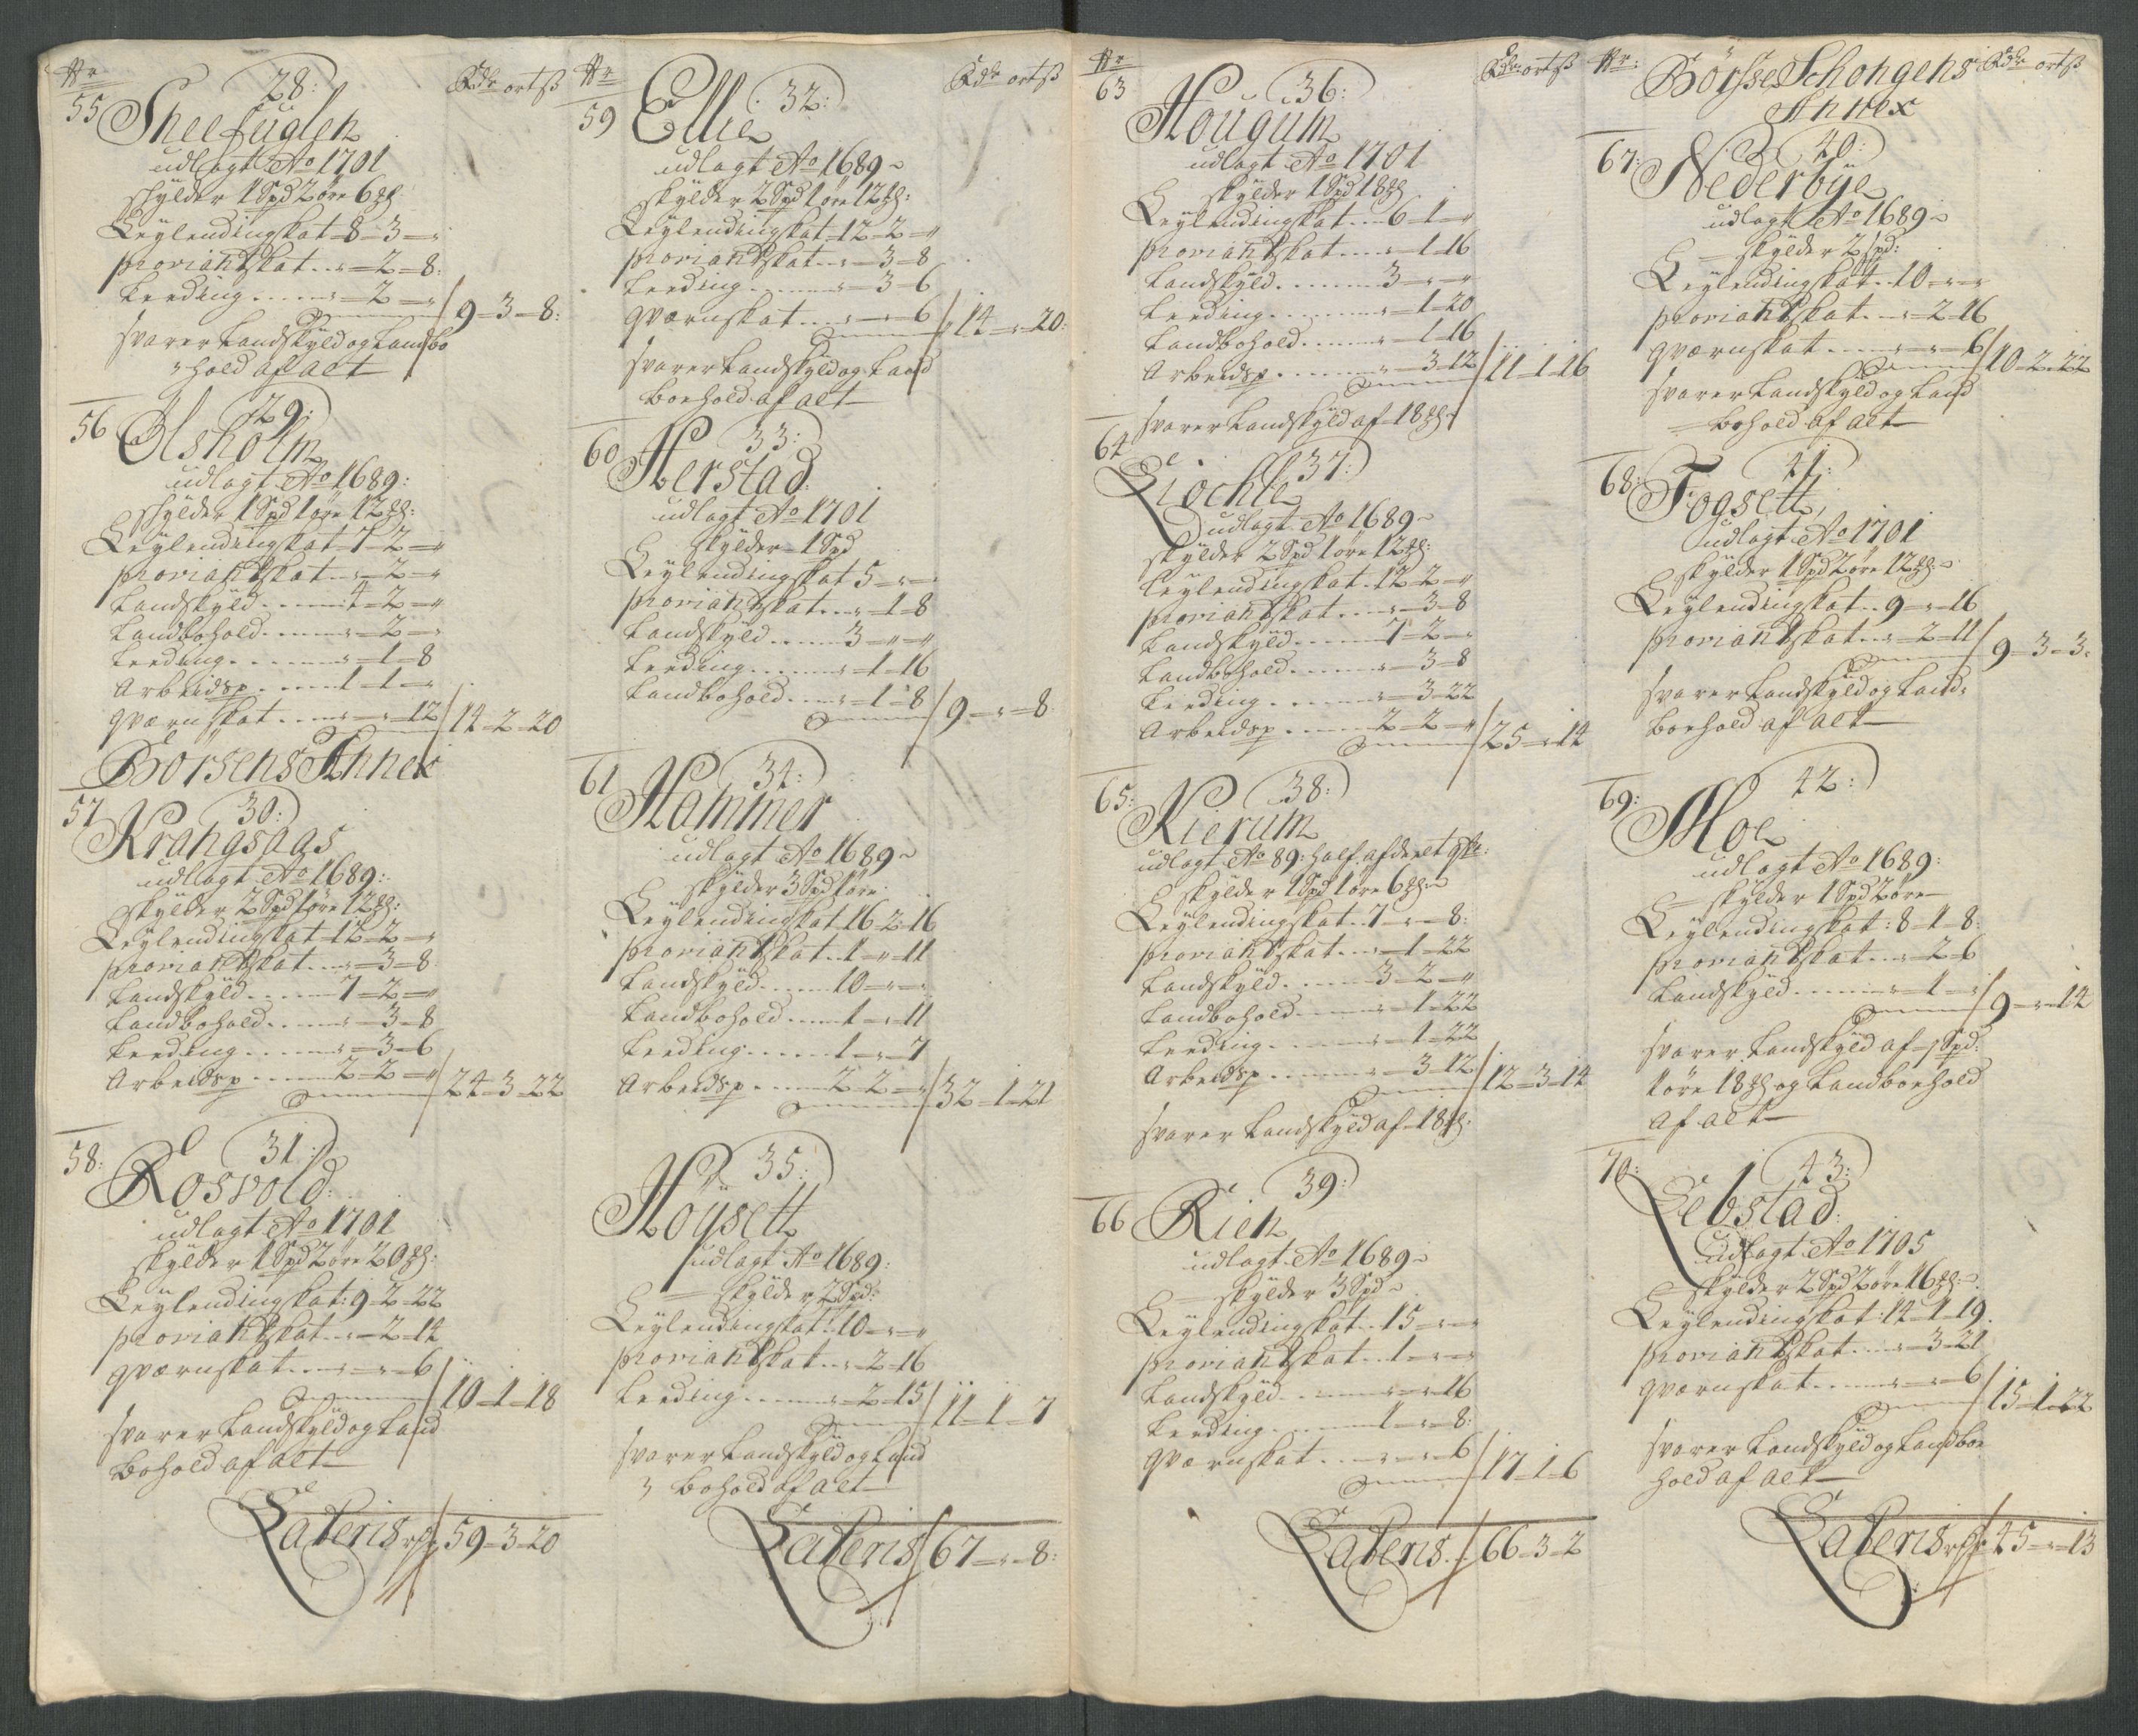 Nr
Rdr ort ß
55
28:
Sneefuglen
udlagt Ao 1701
skylder 1 Spd 2 öre 6 ℔
Leylendingskat 8-3-"
proviantskat..."-2-8:
Leeding......"-2-"
9-3-8:
svarer Landskyld og Landbo
hold af alt
56
29:
Olsholm
udlagt Ao 1689:
skylder 1 Spd 1 öre 12 ℔:
Leylendingskat 7-2-"
proviantskat..."-2-"
Landskyld......4-2-"
Landbohold......"-2-"
Leeding......"-1-8
Arbeidsp.....1-1-"
qværnskat....."-"-12
14-2-20
Börsens Annex
57
30:
Krangsaas
udlagt Ao 1689:
skylder 2 Spd 1 öre 12 ℔:
Leylendingskat 12-2-"
proviantskat..."-3-8
Landskyld......7-2-"
Landbohold....."-3-8
Leeding......"-3-6
Arbeidsp......2-2-"
24-3-22
58:
31:
Rosvold:
udlagt Ao 1701
skylder 1 Spd 2 öre 20 ℔:
Leylendingskat: 9-2-22
proviantskat..."-2-14
qværnskat..."-"-6
10-1-18
svarer Landskyld og Land
bohold af alt
Lateris 59-3-20
Nr
Rdr ort ß
59
32:
Ellie
udlagt Ao 1689
skylder 2 Spd 1 öre 12 ℔:
Leylendingskat 12-2-"
proviantskat..."-3-8
Leeding......"-3-6
qværnskat...."-"-6
14-"-20:
svarer Landskyld og Land
boehold af alt
60
33:
Herstad:
udlagt Ao 1701
skylder 1 Spd
Leylendingskat 5-"-"
proviantskat..."-1-8
Landskyld......3-"-"
Leeding......"-1-16
Landbohold...."-1-8
9-"-8
61
34:
Hammer
udlagt Ao 1689
skylder 3 Spd 1 öre
Leylendingskat 16-2-16
proviantskat...1-"-11
Landskyld......10-"-"
Landbohold.....1-"-11
Leeding......1-"-7
Arbeidsp......2-2-"
32-1-21
35:
Höysett
udlagt Ao 1689:
skylder 2 Spd:
Leylendingskat: 10-"-"
proviantskat..."-2-16
Leeding......"-2-15
11-1-7
svarer Landskyld og Land
bohold af alt
Lateris 67-"-8:
Nr
Rdr ort ß
63
36:
Hougum
udlagt Ao 1701
skylder 1 Spd 18 ℔
Leylendingskat...6-1-"
proviantskat....."-1-16
Landskyld.........3-"-"
Leeding........."-1-20
Landbohold......"-1-16
Arbeidsp........"-3-12
11-1-16
svarer Landskyld af 18 ℔
64
37:
Liochle
udlagt Ao 1689
skylder 2 Spd 1 öre 12 ℔:
Leylendingskat. 12-2-"
proviantskat...."-3-8
Landskyld.......7-2-"
Landbohold......"-3-8
Leeding......"-3-22
Arbeidsp......2-2-"
25-"-14
65:
38:
Kierum
udlagt Ao 89: half afdeelt
skylder 1 Spd 1 öre 6 ℔
Leylendingskat. 7-"-8:
proviantskat...."-1-22
Landskyld.......3-2-"
Landbohold......"-1-22
Leeding........"-1-22
Arbeidsp........"-3-12
12-3-14
svarer Landskyld af 18 ℔:
66
39:
Rien
udlagt Ao 1689
skylder 3 Spd
Leylendingskat...15-"-"
proviantskat....1-"-"
Landskyld......."-"-16
Leeding.........1-"-8:
qværnskat...."-"-6
17-1-6
Lateris 66-3-2
Nr:
Rdr ort ß
Börsse Schongens
Annex
67:
40:
Nederbye
udlagt Ao 1689
skylder 2 spd:
Leylendingskat. 10-"-"
proviantskat...."-2-16
qværnskat......"-"-6
10-2-22
svarer Landskyld og Land
bohold af alt
68:
41:
Fogsett,
udlagt Ao 1701
skylder 1 Spd 2 öre 12 ℔
Leylendingskat...9-"-16
proviantskat..."-2-11
9-3-3
svarer Landskyld og Land
boehold af alt
69:
42:
Moe
udlagt Ao 1689:
skylder 1 Spd 2 öre
Leylendingskat: 8-1-8:
proviantskat...."-2-6
Landskyld......"-1-"
9-"-14
svarer Landskyld af 1 Spd:
1 öre 18 ℔ og Landboehold
af alt
70:
43:
Lebstad:
udlagt Ao 1705
skylder 2 Spd 2 öre 16 ℔
Leylendingskat: 14-1-19.
proviantskat...."-3-21
qværnskat......"-"-6
15-1-22
svarer Landskyld og Landboe
hold af alt
Lateris 45-"-13